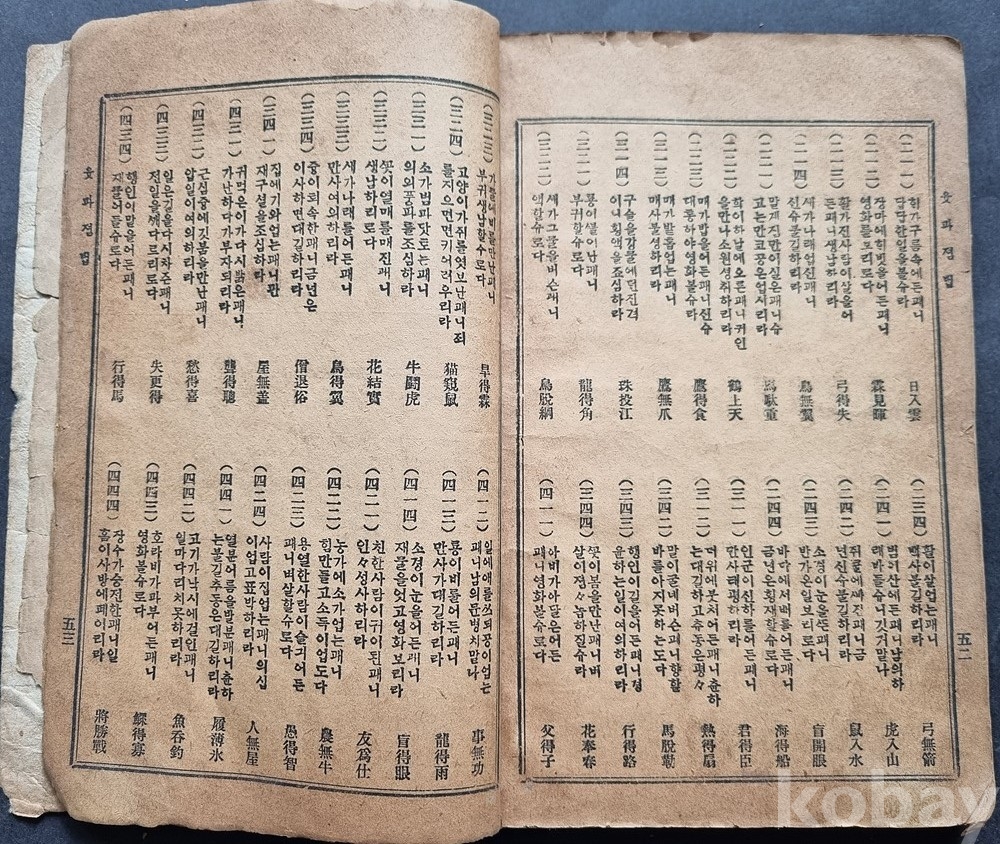 웃과졈법
(二一一)
해가구름속에든패니
답답한일을볼슈라
日入雲
(二一二)
장마에해빗을어든패니
영화를보리로다
霖見暉
(二一三)
활가진사람이살을어
든패니생남하리라
弓得矢
(二一四)
새가나래업신패니
신슈불길하리라
鳥無翼
(二二一)
말게진만이실은패니슈
고는만코공은업시리라
馬駄重
(二二二)
학이하날에오른패니귀인
을만나소원셩취하리라
鶴上天
(二二三)
매가밥을어든패니신슈
대통하야영화볼슈라
鷹得食
(三一三)
매가발톱업는패니
매사불셩하리라
鷹無爪
(三一四)
구슬을강물에던진격
이니횡액을죠심하라
珠投江
(三二一)
룡이뿔이난패니
부귀할슈로다
龍得角
(三二二)
새가그물을버슨패니
액할슈로다
鳥脫網
(二三四)
활이살업는패니
백사불셩하리라
弓無箭
(二四一)
범이산에든패니남의하
래바들슈니깃거말나
虎入山
(二四二)
쥐물에빠진패니금
년신슈불길하리라
鼠入水
(二四三)
소경이눈을뜬패니
반가온일보리로다
盲開眼
(二四四)
바다에셔배를어든패니
금년은횡재할슈로다
海得船
(三一一)
인군이신하를어든패니
만사태평하리라
君得臣
(三一二)
더위에붓채어든패니츈하
는대길하고추동은평々
熱得扇
(三四二)
말이굴네버슨패니향할
바를아지못하는도다
馬脫勒
(三四三)
행인이길을어든패니경
윤하는일이여의하리라
行得路
(三四四)
꼿이봄을만난패니버
살이졍々놉하질슈라
花奉春
(四一一)
아비가아달은어든
패니영화볼슈로다
父得子
五二
(三二三)
가물에비를만난패니
부귀생남할슈로다
早得霖
(三二四)
고양이가쥐를엿브난패니죄
를지으면면키어려우리라
猫窺鼠
(三三一)
소가범과닷토는패니
의외풍파를조심하라
牛鬪虎
(三三二)
꼿이열매를매진패니
생남하리로다
花結實
(三三三)
새가나래를어든패니
만사여의하리라
鳥得翼
(三三四)
중이퇴속한패니금년은
이사하면대길하리라
僧退俗
(三四一)
집에기와업는패니관
재구셜을조심하라
屋無蓋
(四三一)
귀먹은이가다시밝은패니
가난하다가부자되리라
聾得聰
(四三二)
근심중에깃봄을만난패니
압일이여의하리라
愁得喜
(四三三)
일은길을다시차즌패니
젼일을쎄다르리로다
失更得
(四三四)
행인이말을어든패니
재물어들슈로다
行得馬
(四一二)
일에애를쓰되공이업는
패니남의문병치말나
事無功
(四一三)
룡이비를어든패니
만사가대길하리라
龍得雨
(四一四)
소경이눈을든패니
재물을엇고영화보리라
盲得眼
(四二一)
친한사람이귀이된패니
인々셩사하리라
友爲仕
(四二二)
농가에소가업는패니
힘만들고소득이업도다
農無牛
(四二三)
용열한사람이슬기어든
패니벼살할슈로다
愚得智
(四二四)
사람이집업는패니의심
이업고표박하리라
人無屋
(四四一)
열분어름을발분패니츈하
는불길츄동은대길하리라
履薄氷
(四四二)
고기가낙시에걸인패니
일마다리치못하리라
魚吞釣
(四四三)
호라비가과부어든패니
영화볼슈로다
鰥得寡
(四四四)
장수가승젼한패니일
홈이사방에페이리라
將勝戰
웃과졈법
五三
kobay